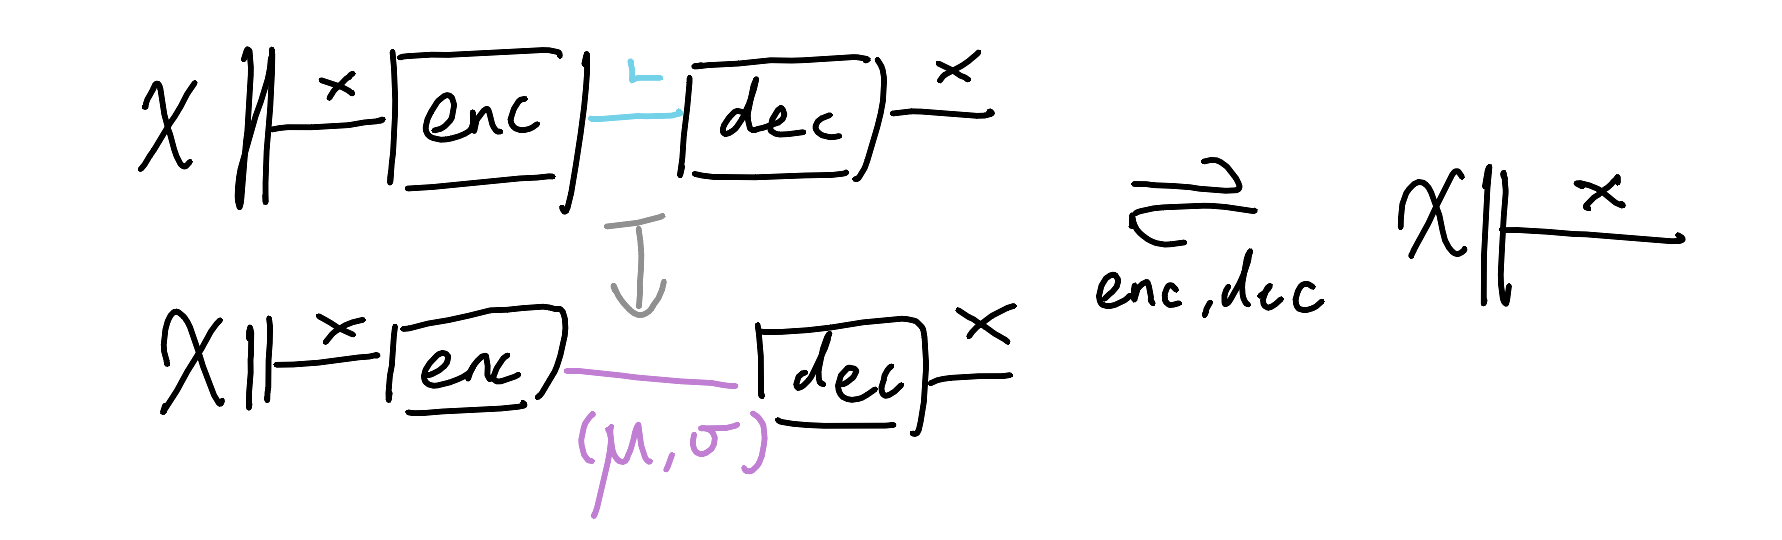 X x enc L dec x
X x enc (μ, σ) dec x
enc, dec
X x